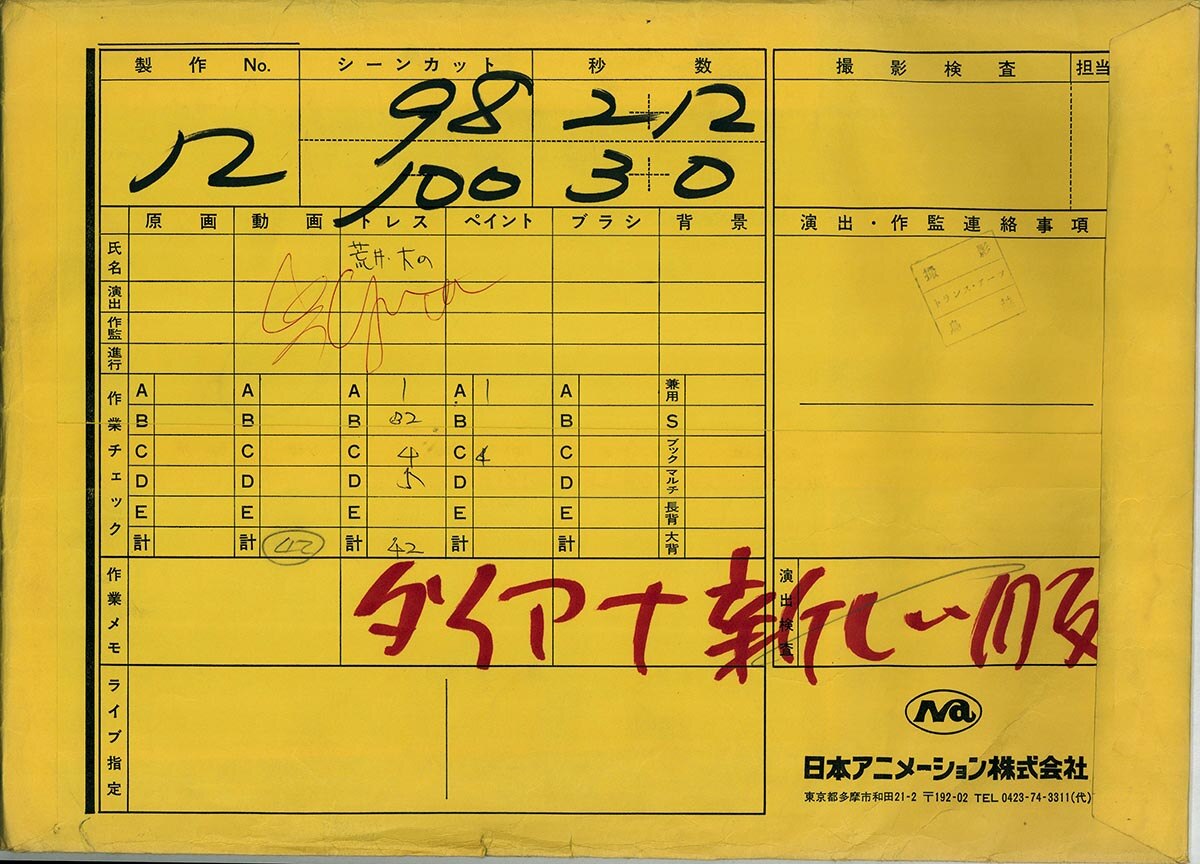 製作 No. シーンカット 秒数 撮影検査 担当
12 98 2+12
100 3+0
原画 動画 トレス ペイント ブラシ 背景 演出・作監連絡事項
氏名 荒井・大の
演出
作監
進行
撮影
トランス・アーツ
作業チェック
A A A 1 A 1 A 兼用
B B B 32 B B S
C C C 4 C 4 C ブック
D D D 5 D D マルチ
E E E E E 長背
計 計 42 計 42 計 計 大背
作業メモ ダイアナ新しい服 演出検査
ライブ指定
Na
日本アニメーション株式会社
東京都多摩市和田21-2 〒192-02 TEL 0423-74-3311(代)